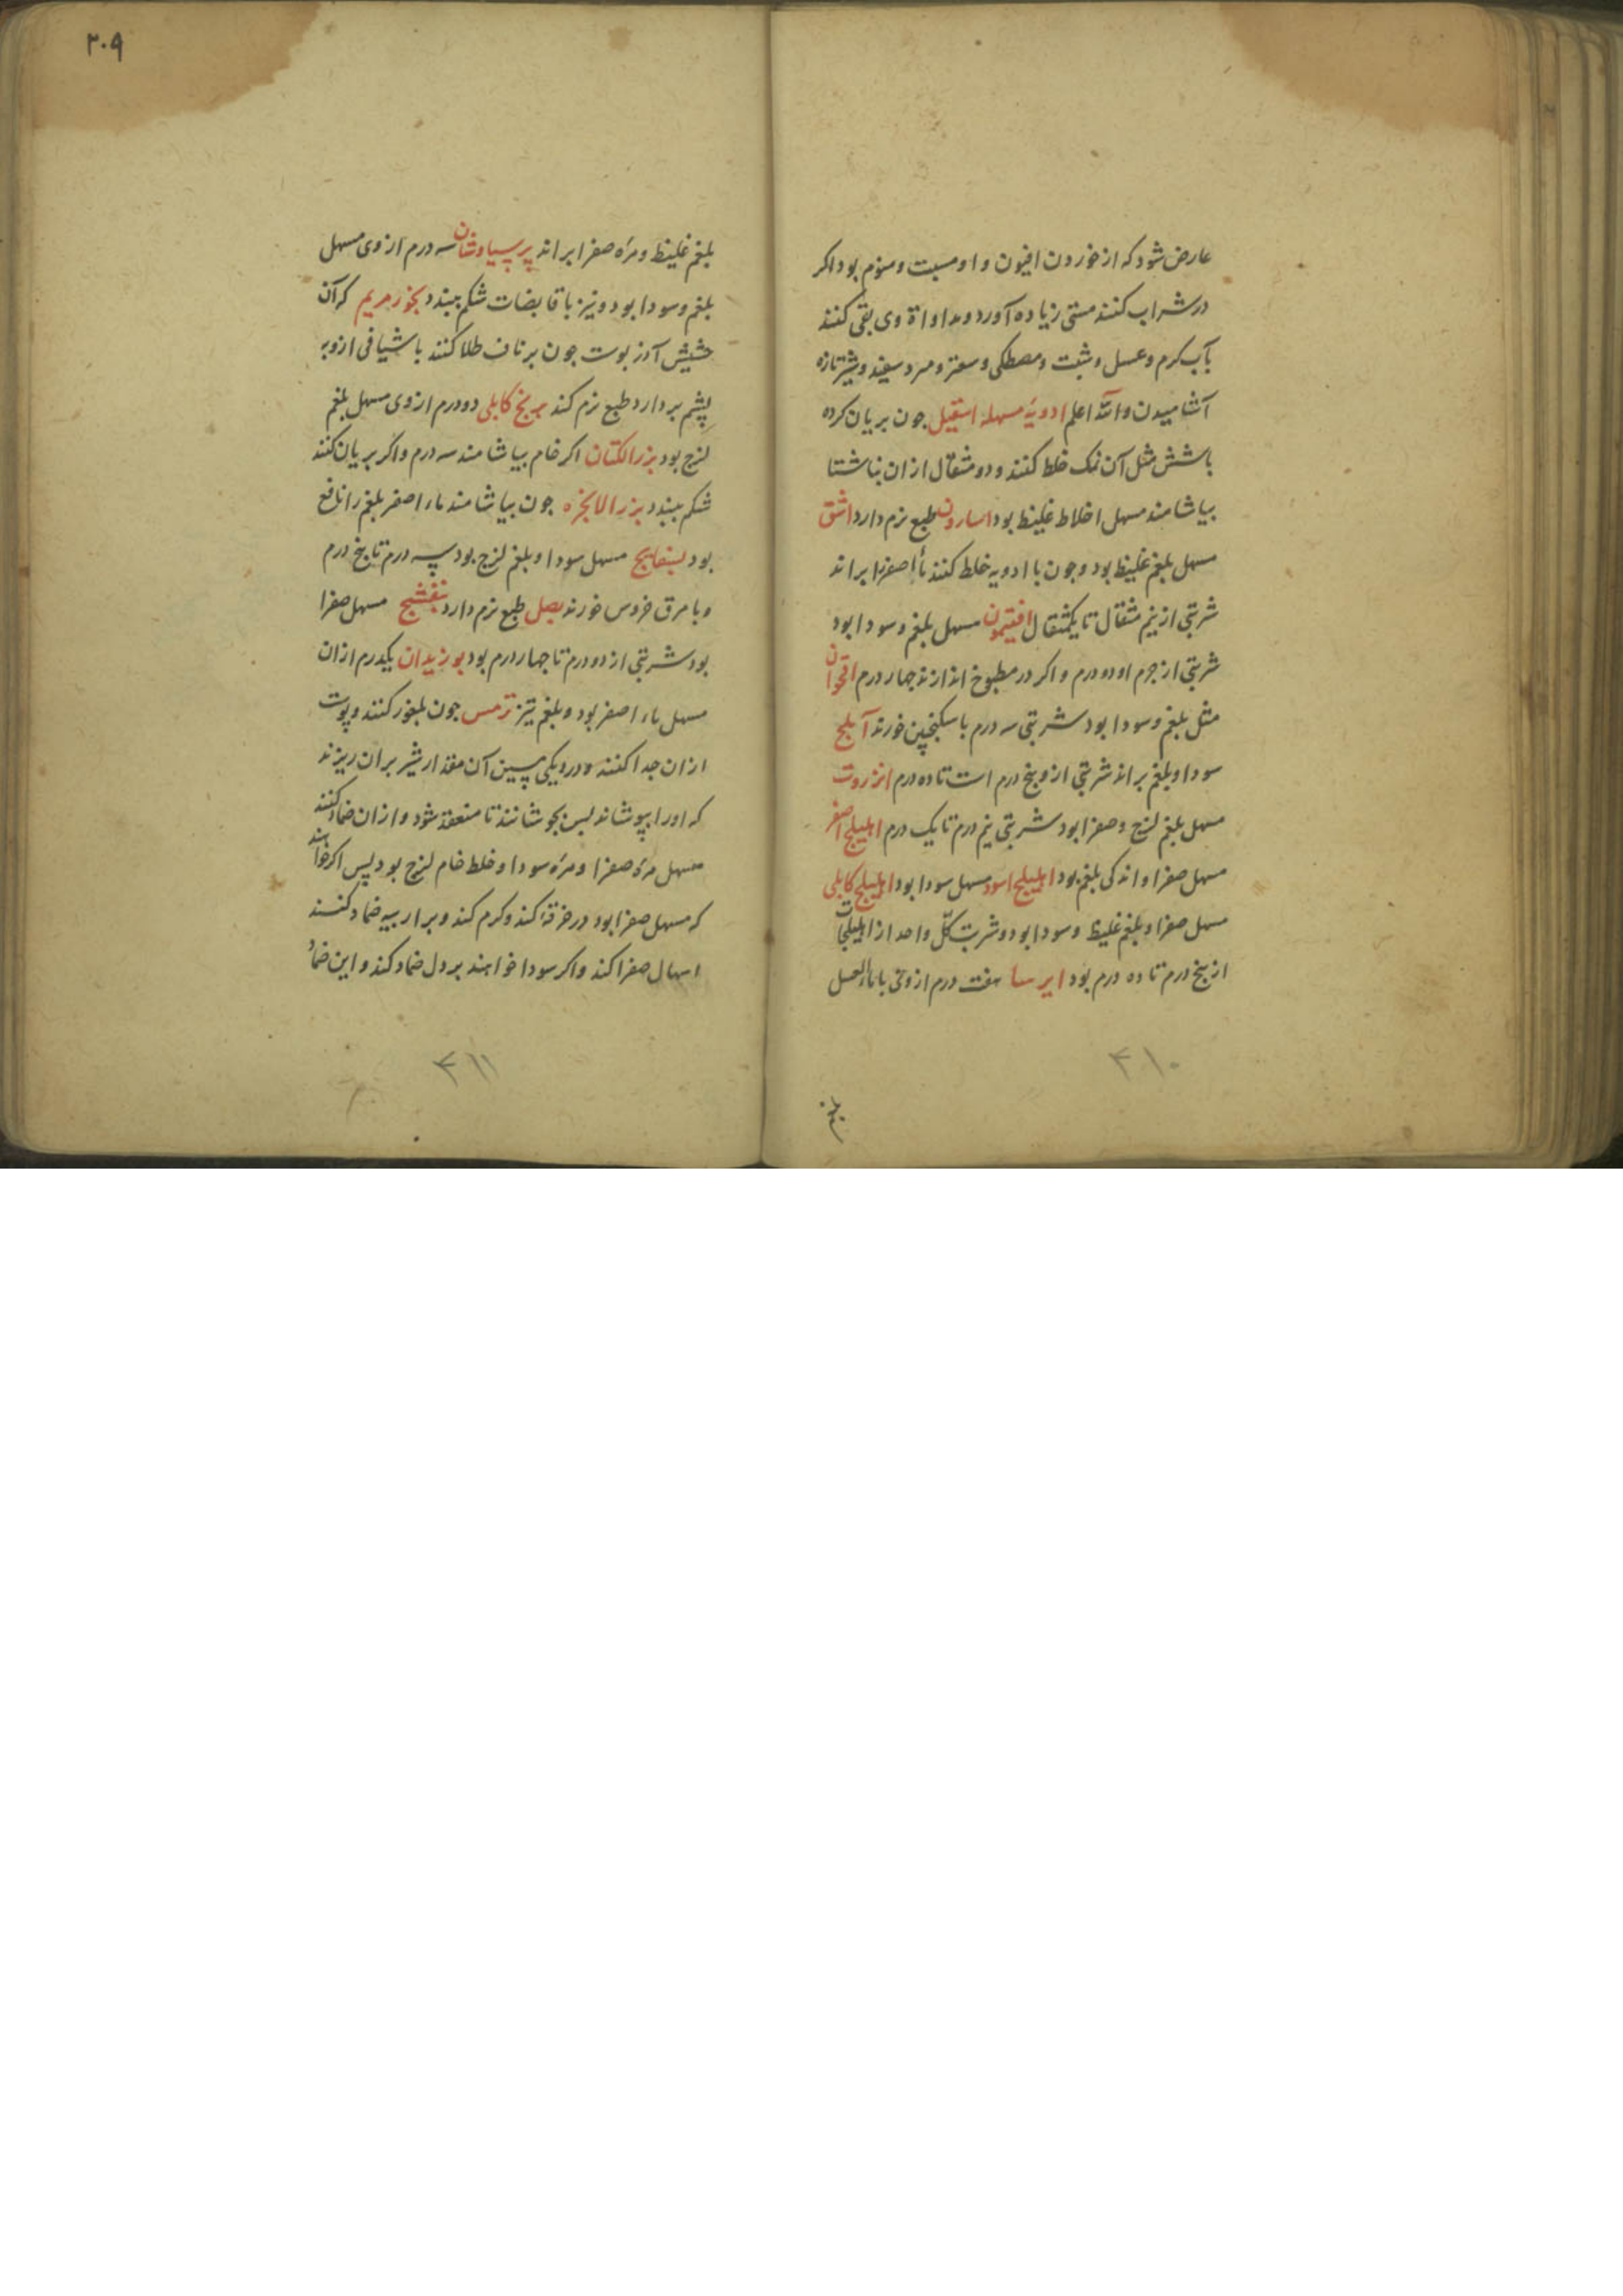 عارض شود که از خوردن افیون و او مسبت و منوم بود اکر
در شراب کنند مستی زیاده آورد و مداواة وی بقی کنند
بآب کرم و عسل و شبت و مصطکی و سعتر و مرد سفید و شیر تازه
آشامیدن والله اعلم ادویهٔ مسهله اسقیل جون بریان کرده
باشش مثل آن نمک خلط کنند و دو مثقال ازان بناشتا
بیاشامند مسهل اخلاط غلیظ بود اسارون طبع نرم دارد اشق
مسهل بلغم غلیظ بود و جون با ادویه خلط کنند ماٴ اصفر را براند
شربتی از نیم مثقال تا یکمثقال افتیمون مسهل بلغم و سودا بود
شربتی از جرم او دو درم و اکر در مطبوخ اندازند جهار درم اقحوان
مثل بلغم و سودا بود شربتی سه درم با سکنجبین خورند آبلج
سودا و بلغم براند شربتی از و پنج درم است تا ده درم انزروت
مسهل بلغم لزج و صفرا بود شربتی نیم درم تا یک درم اهلیلج اصفر
مسهل صفرا و اندکی بلغم بود اهلیلج اسود مسهل سودا بود اهلیلج کابلی
مسهل صفرا و بلغم غلیظ و سودا بود و شربت کلّ واحد از اهلیلجات
از پنج درم تا ده درم بود ایرسا هفت درم از وی با ماء العسل
۴۱۰
بلغم
۲۰۹
بلغم غلیظ و مرّه صفرا براند پرسیاوشان سه درم از وی مسهل
بلغم و سودا بود و نیز با قابضات شکم ببندد بخور مریم که آن
حشیش آذربوست جون بر ناف طلا کنند با شیافی ازو به
پشم بردارد طبع نرم کند برنج کابلی دو درم از وی مسهل بلغم
لزج بود بزر الکتان اکر خام بیاشامند سه درم و اکر بریان کنند
شکم ببندد بزر الانجره جون بیاشامند ماء اصفر بلغم را نافع
بود بسفایج مسهل سودا و بلغم لزج بود سه درم تا پنج درم
و با مرق خروس خورند بصل طبع نرم دارد بنفشج مسهل صفرا
بود شربتی از دو درم تا جهار درم بود بوزیدان یکدرم ازان
مسهل ماء اصفر بود و بلغم نیز ترمس جون بلغور کنند و پوست
ازان جدا کنند و در دیکی مسین آن مقدار شیر بران ریزند
که اورا بپوشاند بس بجوشانند تا منعقد شود و ازان ضماد کنند
مسهل مرهٔ صفرا و مرهٔ سودا و خلط خام لزج بود پس اکر خواهند
که مسهل صفرا بود در خرقهٔ کند و کرم کند و بر اربیه ضماد کنند
اسهال صفرا کند و اکر سودا خواهند بر دل ضماد کند و این ضماد
۴۱۱